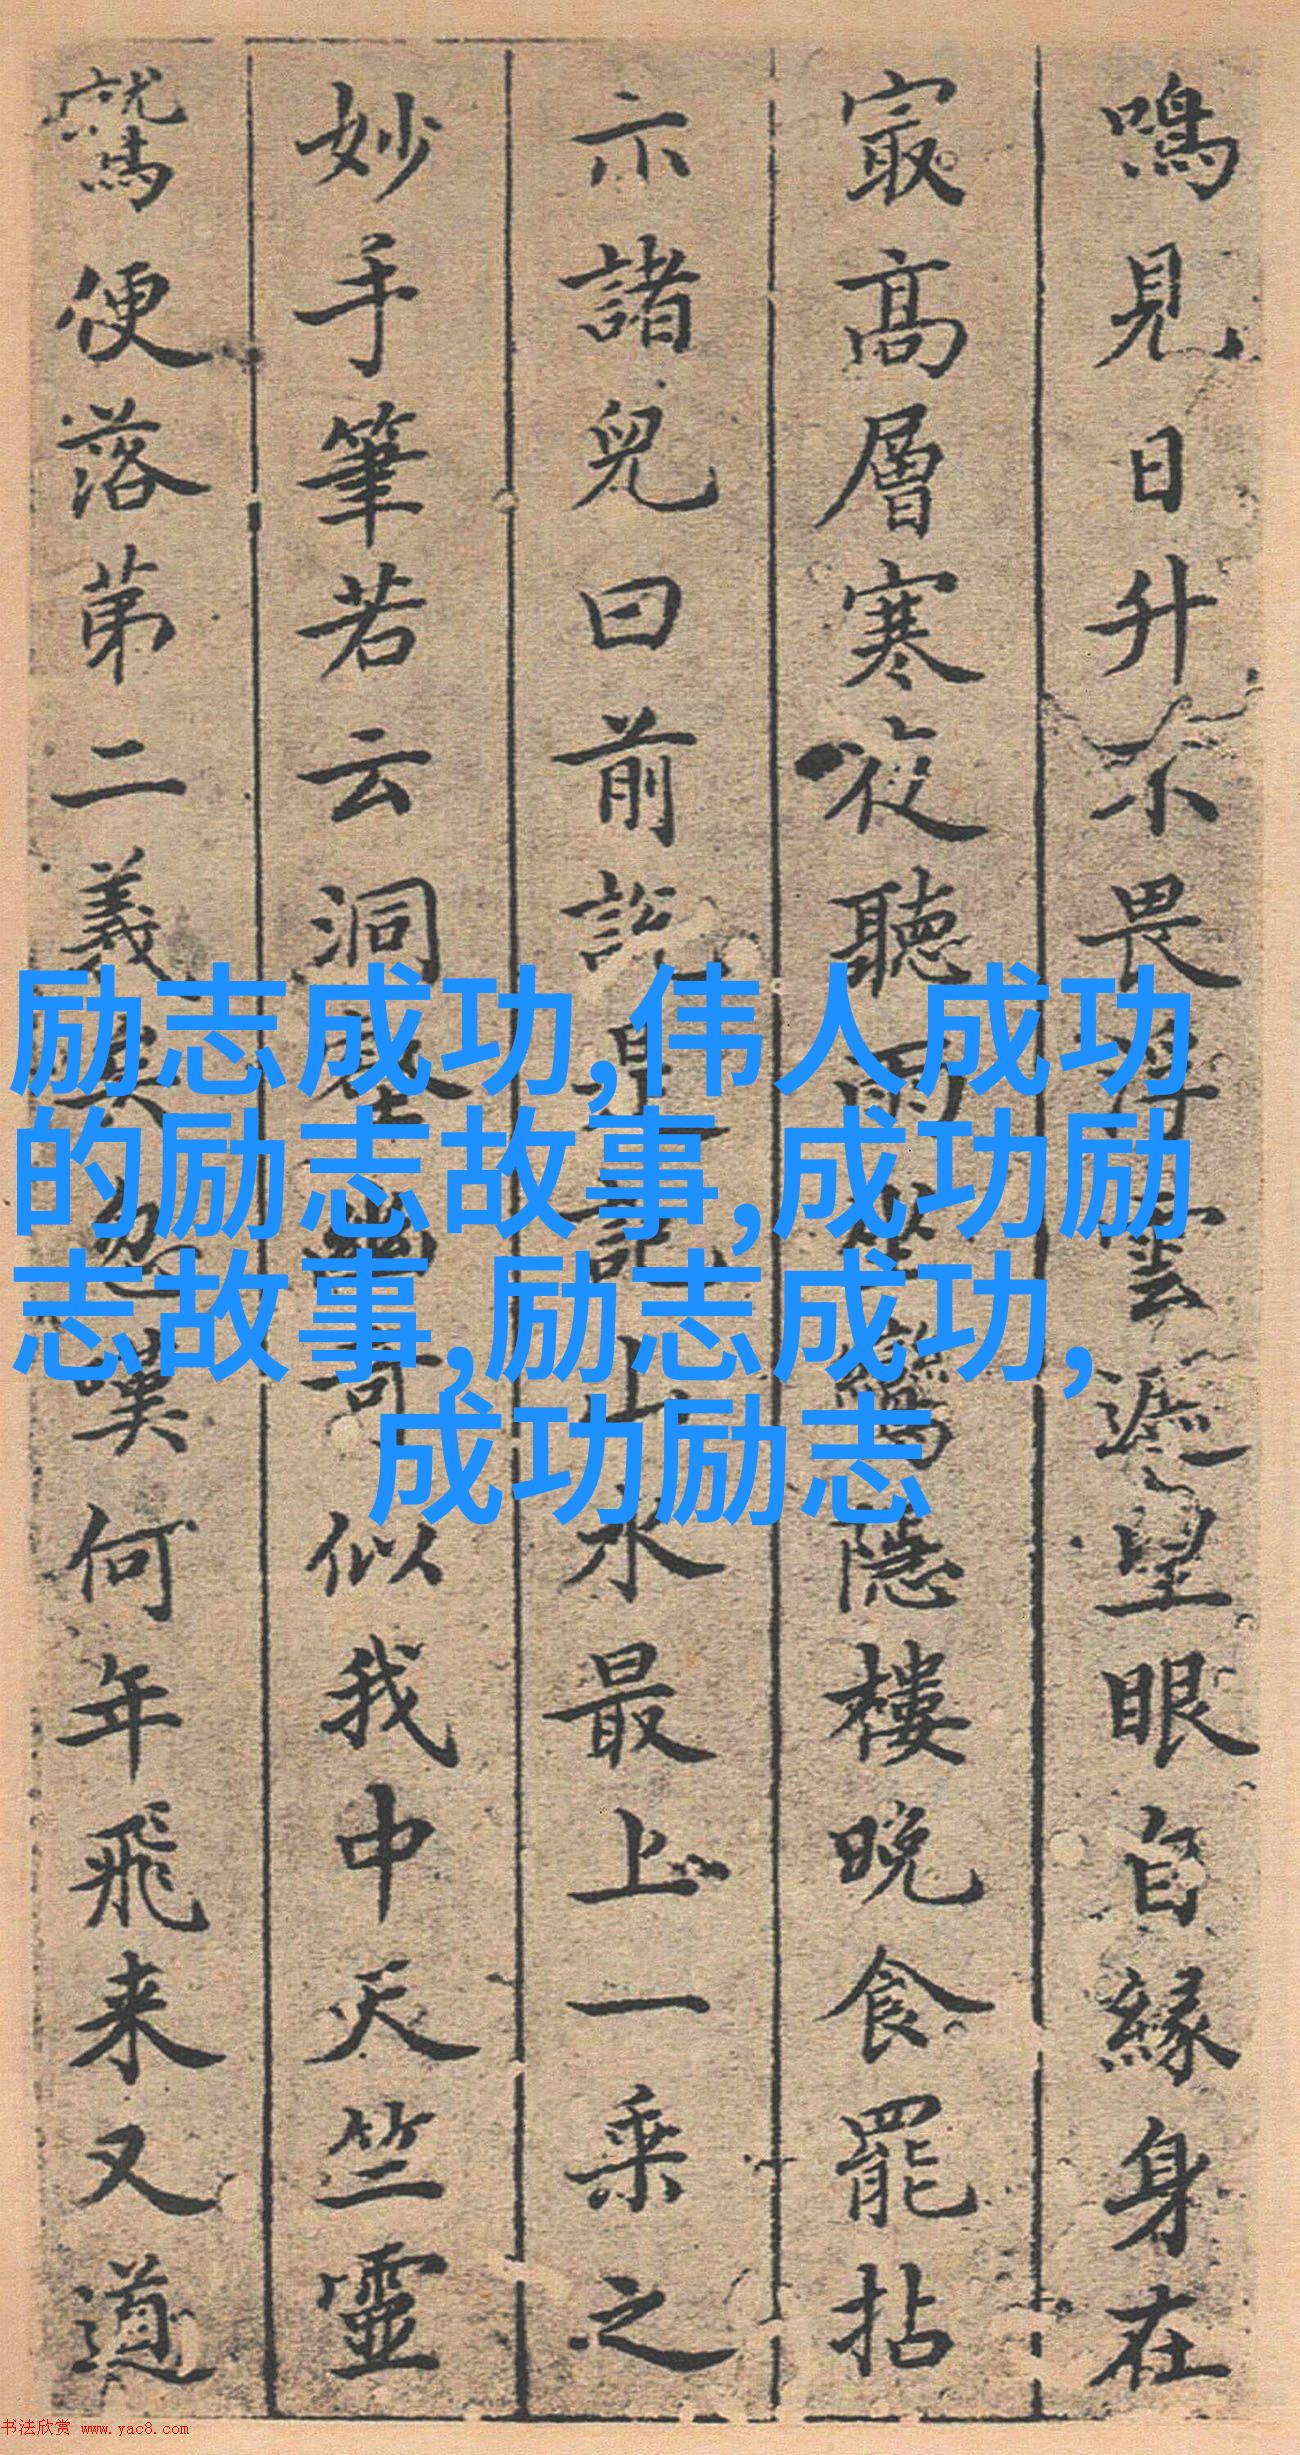 鳴見日升不畏浮雲遮望眼自緣身在
㝡高層寒夜聽雨隱樓晚食罷拈
示諸兒曰前說是記止水最上一乘之
妙手筆若云洞壑幽奇似我中天竺靈
鷲便落第二義矣忽嘆何年飛来又道
励志成功,伟人成功
的励志故事,成功励
志故事,励志成功,
成功励志
书法欣赏 www.yac8.com